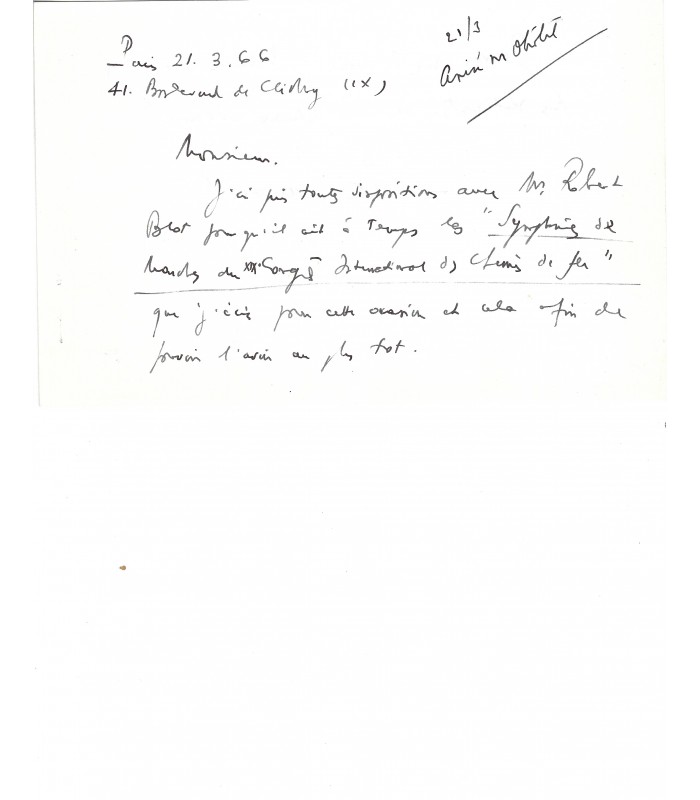 21/3
Paris 21. 3. 66
41. Boulevard de Clichy (IX)
Monsieur.
J'ai pris toutes dispositions avec Mr. Robert
Blot pour qu'il ait à temps les "Symphonies de
Marches du XIX. Congrès International des Chemins de fer"
que j'écris pour cette occasion et cela afin de
pouvoir l'avoir au plus tot.